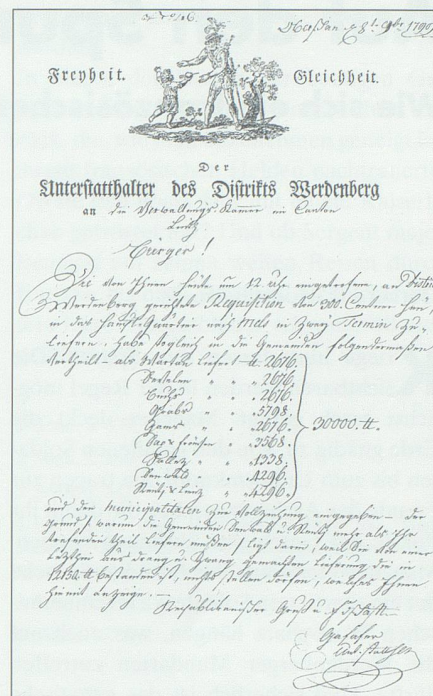 Freyheit. Gleichheit.
Der
Unterstatthalter des Distrikts Werdenberg
an die Verwaltungs Kammer im Canton
Linth
Bürger!
Die von Ihnen heute um 12. Uhr eingetroffene, an District
Werdenberg gerichtete Requisition von 300. Centner Heu,
in das Haupt-Quartier nach Mels in Zwey Termin Zu
liefern, habe sogleich in die Gemeinden folgendermaßen
vertheilt - als Wartau liefert ℔. 2676.
Sevelen " " 2676.
Buchs " " 2676.
Grabs " " 5798.
Gams " " 2676. 30000. ℔.
Sax & Frümsen " " 3568.
Salez " " 1338.
Sennwald " " 4296.
Rüthi & Lienz " " 4296.
und den Municipalitäten zur Vollziehung eingegeben - der
Grund, warum die Gemeinden Sennwald u Rüthi mehr als ihr
treffenden theil liefern müßen, ligt darin, weil Sie von einer
letzthin aus drang u Zwang gemachten Lieferung die in
℔ bestanden ist, nichts haben, welches Ihnen
hiemit anzeige. —
Republikanischer Gruß u